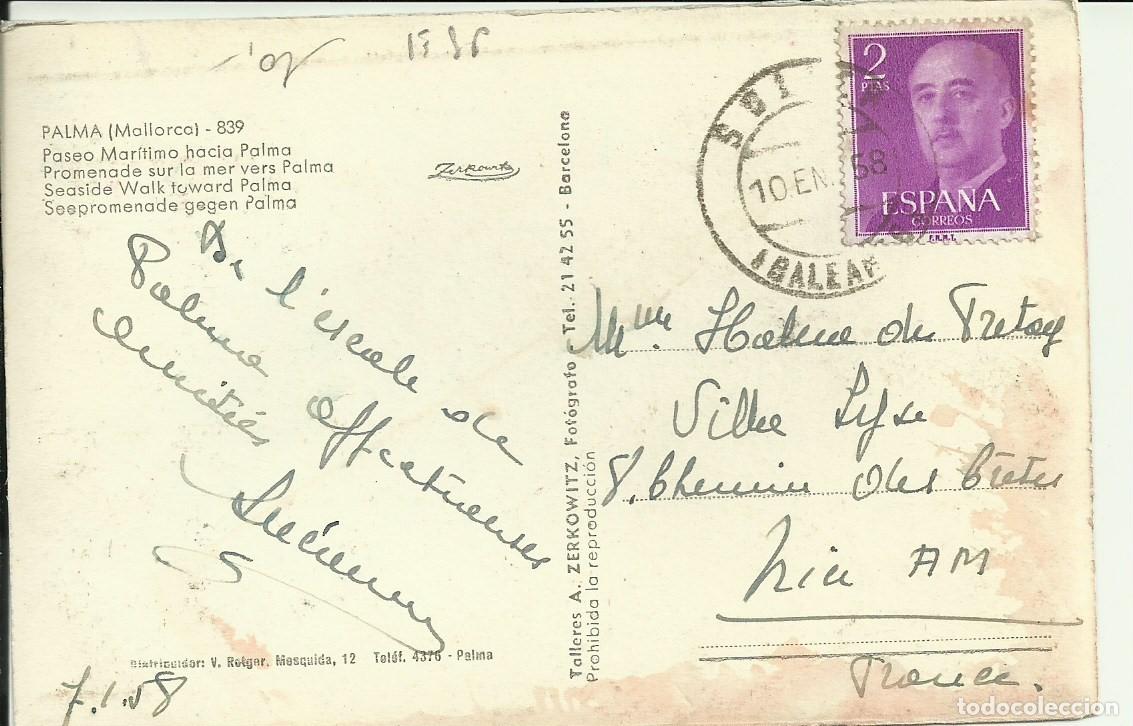 PALMA (Mallorca) - 839
Paseo Marítimo hacia Palma
Promenade sur la mer vers Palma
Seaside Walk toward Palma
Seepromenade gegen Palma
Zerkowitz
2
PTAS
ESPAÑA
CORREOS
F.N.M.T.
10 EN. 58
(BALEAR
De l'escale de
Palma affectueuses
amitiés
7.1.58
Talleres A. ZERKOWITZ, Fotógrafo - Tel. 21 42 55 - Barcelona
Prohibida la reproducción
Mme de
Villa
8. Chemin des Crêtes
Nice AM
France.
Distribuidor: V. Rotger. Mesquida, 12 Teléf. 4376 - Palma
todocoleccion